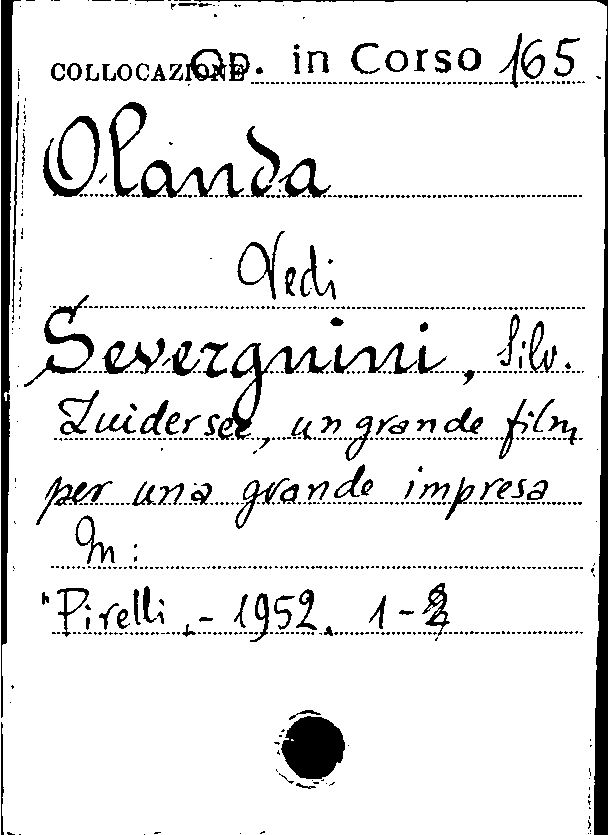 COLLOCAZIONE Op. in Corso 165
Olanda
Vedi
Severgnini, Silv.
Zuidersee, un grande film
per una grande impresa
In:
"Pirelli.- 1952. 1-2